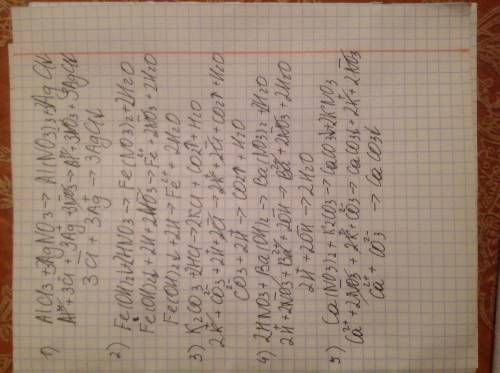 1) AlCl3 + 3AgNO3 → Al(NO3)3 + 3AgCl↓
Al³⁺ + 3Cl⁻ + 3Ag⁺ + 3NO3⁻ → Al³⁺ + 3NO3⁻ + 3AgCl↓
3Cl⁻ + 3Ag⁺ → 3AgCl↓
2) Fe(OH)2↓ + 2HNO3 → Fe(NO3)2 + 2H2O
Fe(OH)2↓ + 2H⁺ + 2NO3⁻ → Fe²⁺ + 2NO3⁻ + 2H2O
Fe(OH)2↓ + 2H⁺ → Fe²⁺ + 2H2O
3) K2CO3 + 2HCl → 2KCl + CO2↑ + H2O
2K⁺ + CO3²⁻ + 2H⁺ + 2Cl⁻ → 2K⁺ + 2Cl⁻ + CO2↑ + H2O
CO3²⁻ + 2H⁺ → CO2↑ + H2O
4) 2HNO3 + Ba(OH)2 → Ba(NO3)2 + 2H2O
2H⁺ + 2NO3⁻ + Ba²⁺ + 2OH⁻ → Ba²⁺ + 2NO3⁻ + 2H2O
2H⁺ + 2OH⁻ → 2H2O
5) Ca(NO3)2 + K2CO3 → CaCO3↓ + 2KNO3
Ca²⁺ + 2NO3⁻ + 2K⁺ + CO3²⁻ → CaCO3↓ + 2K⁺ + 2NO3⁻
Ca²⁺ + CO3²⁻ → CaCO3↓